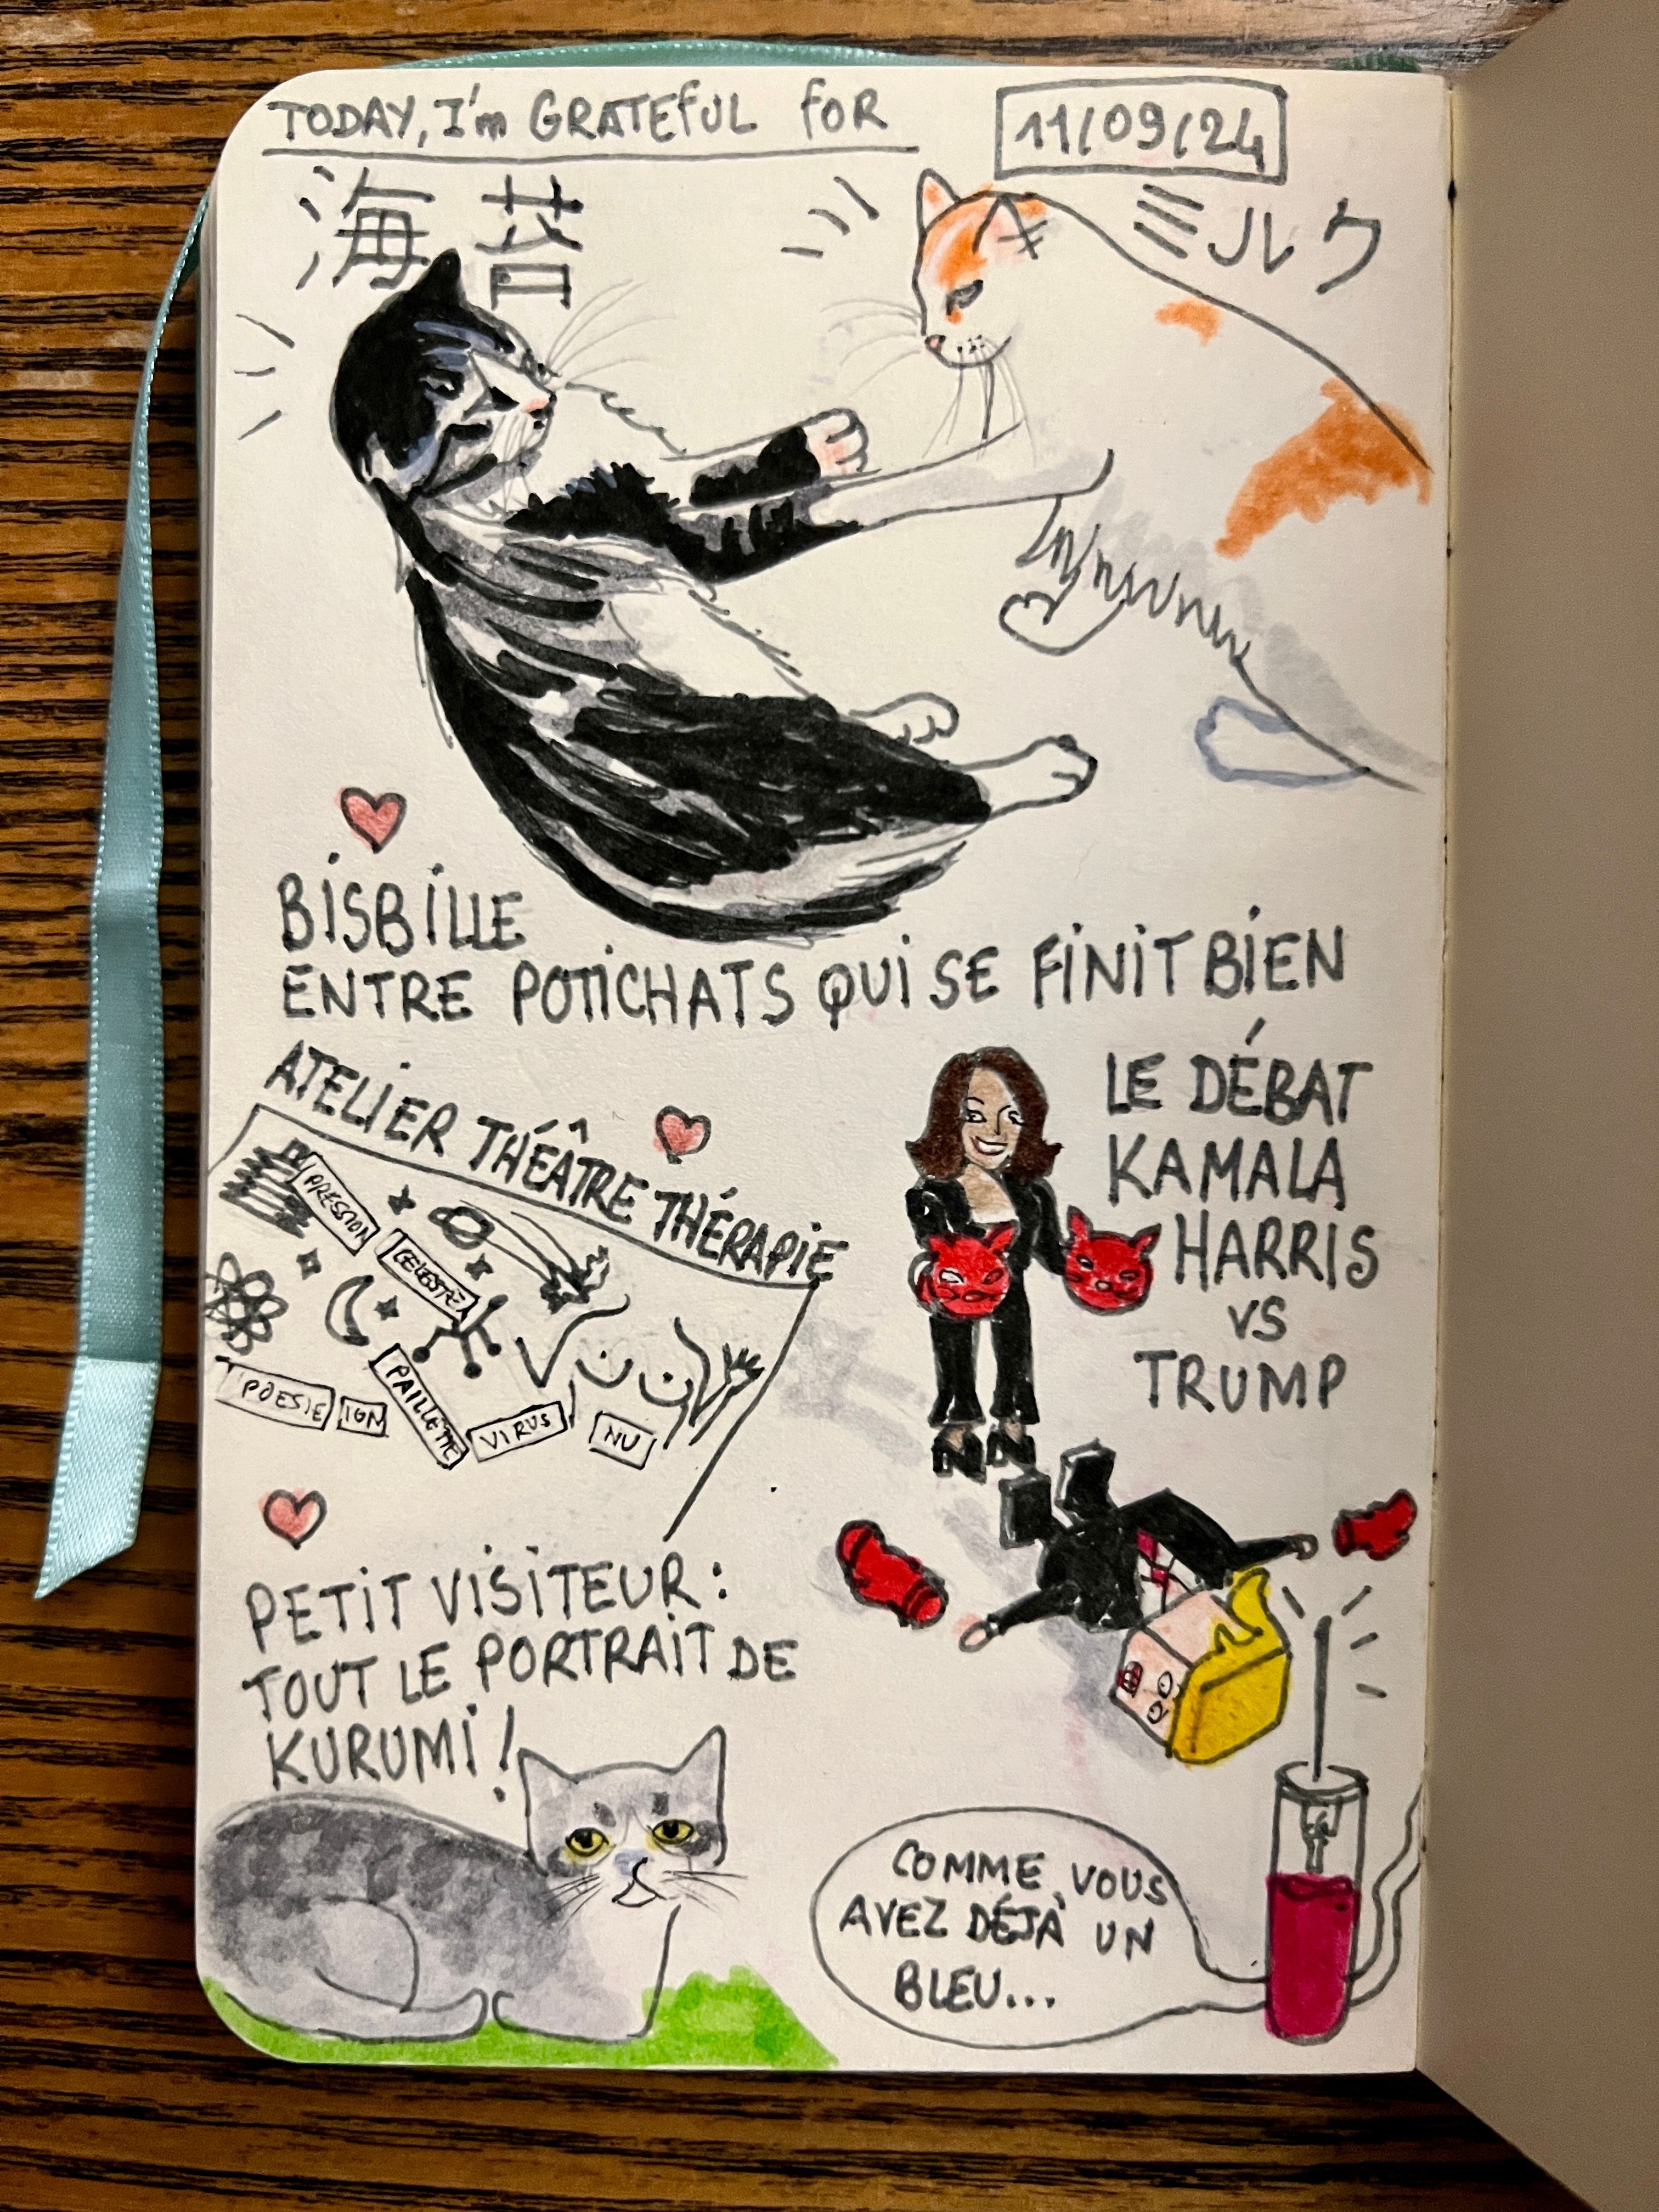 TODAY, I'm GRATEFUL FOR
11/09/24
海苔
ミルク
BISBILLE
ENTRE POTICHATS QUI SE FINIT BIEN
ATELIER THÉÂTRE THÉRAPIE
PRESSION
CELESTE
POESIE
IGN
PAILLETTE
VIRUS
NU
LE DÉBAT
KAMALA
HARRIS
VS
TRUMP
PETIT VISITEUR :
TOUT LE PORTRAIT DE
KURUMI !
COMME VOUS
AVEZ DÉJÀ UN
BLEU...